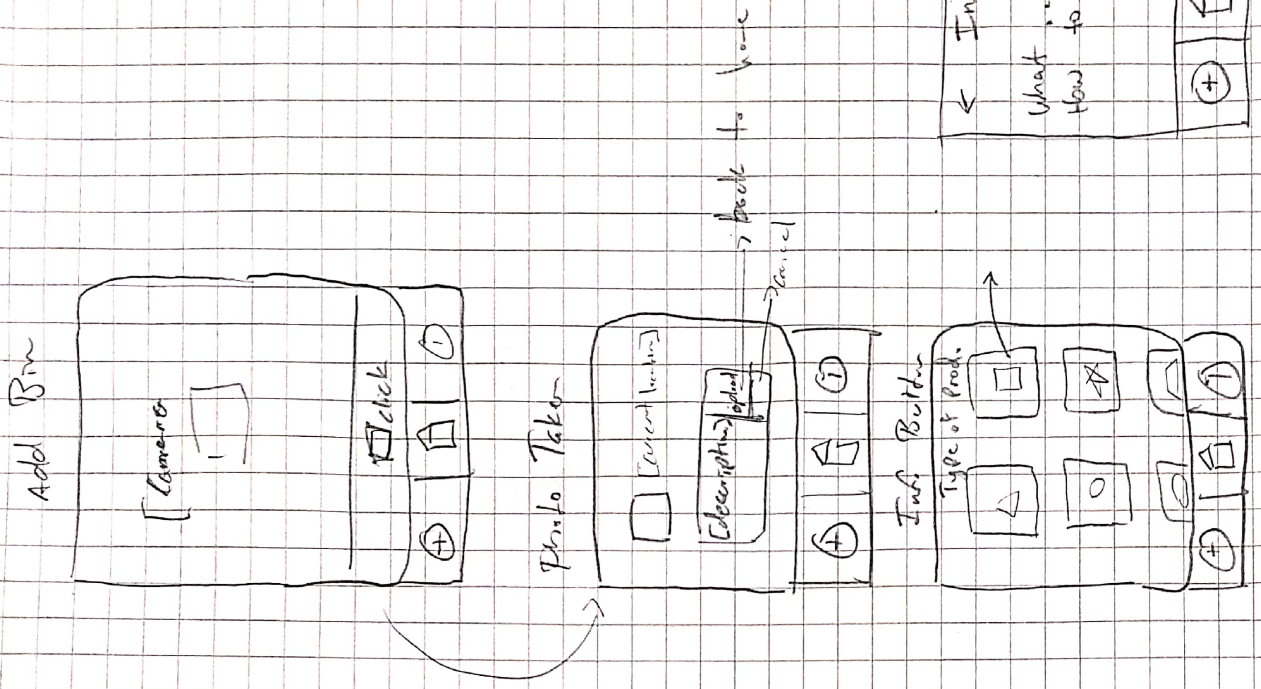 Add Bin
[Camera
click
+
i
Photo Taken
[current location]
[description]
upload
→ back to home
→ cancel
+
i
Info Button
Type of Prod.
+
i
← In
What i
How to
+